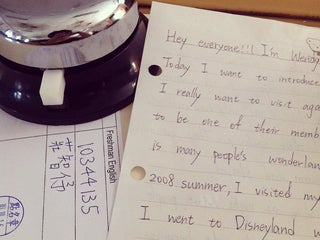 Hey everyone!!! I'm Wendy
Today I want to introduce
I really want to visit aga
to be one of their memb
is many people's wonderlan
2008 summer, I visited my
I went to Disneyland w
Freshman English
10344135